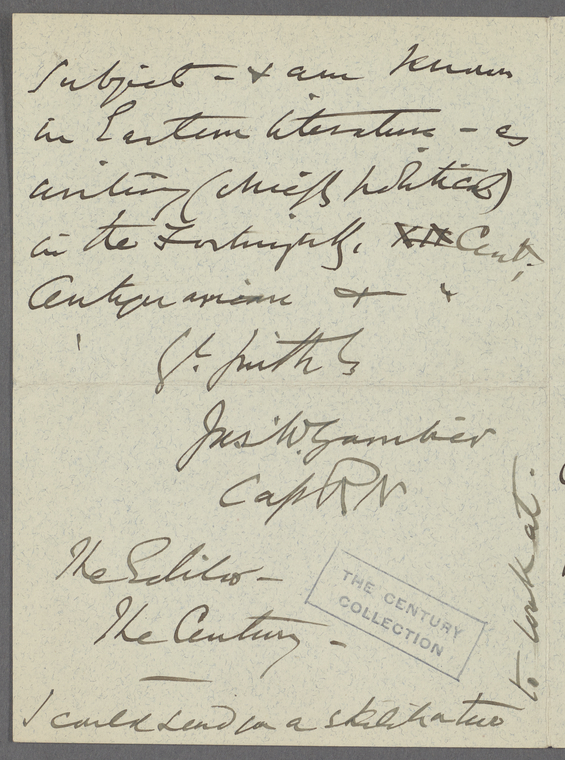 Subject – & am known
in Eastern literature – as
writing (chiefly political)
in the Fortnightly, XIX Cent,
Antiquarian &
Yr. faithfly
Jas. W. Gambier
Cap RN
The Editor –
The Century –
THE CENTURY
COLLECTION
I could send you a sketch or two
to look at.